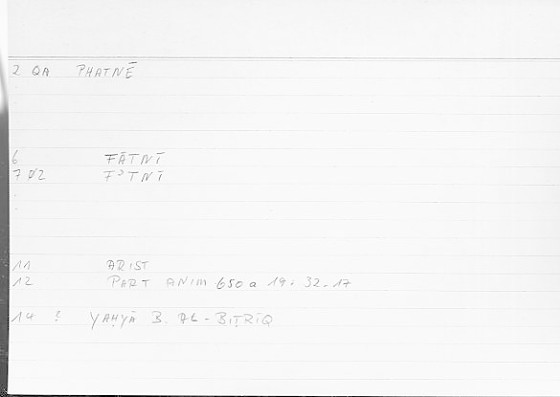 2 QA PHATNĒ
6 FĀTNĪ
7 Ø2 FʾTNĪ
11 ARIST
12 PART ANIM 650a 19. 32. 17
14 ? YAḤYĀ B. AL-BIṬRĪQ